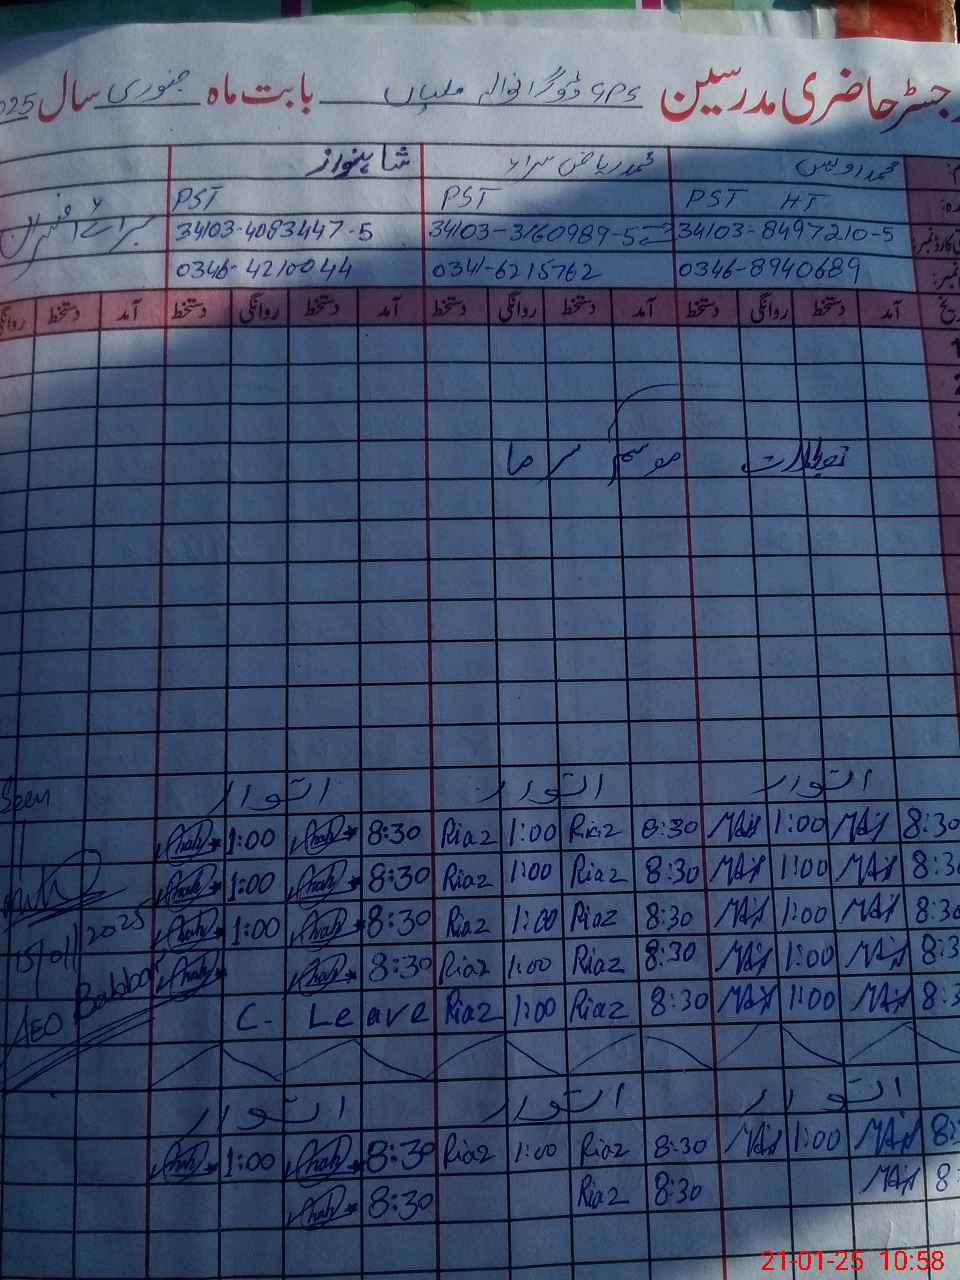 رجسٹر حاضری مدرسین GPS ڈوگرانوالہ ملیاں بابت ماہ جنوری سال 2025
محمد اویس محمد ریاض سراء شاہنواز
PST HT PST PST
34103-8497210-5 34103-3160989-5 34103-4083447-5
0346-8940689 0341-6215762 0346-4210044
آمد دستخط روانگی دستخط آمد دستخط روانگی دستخط آمد دستخط روانگی دستخط آمد دستخط روانگی
1
2
تعطیلات موسم سرما
اتوار اتوار اتوار
Seen
8:30 MAis 1:00 MAis 8:30 Riaz 1:00 Riaz 8:30 Shah 1:00 Shah
8:30 MAis 1:00 MAis 8:30 Riaz 1:00 Riaz 8:30 Shah 1:00 Shah
8:30 MAis 1:00 MAis 8:30 Riaz 1:00 Riaz 8:30 Shah 1:00 Shah
15/01/2025
8:3 MAis 1:00 MAis 8:30 Riaz 1:00 Riaz 8:30 Shah Shah
8:3 MAis 1:00 MAis 8:30 Riaz 1:00 Riaz C. Leave
AEO Babbar
اتوار اتوار اتوار
8: MAis 1:00 MAis 8:30 Riaz 1:00 Riaz 8:30 Shah 1:00 Shah
8: MAis 8:30 Riaz 8:30 Shah
21-01-25 10:58